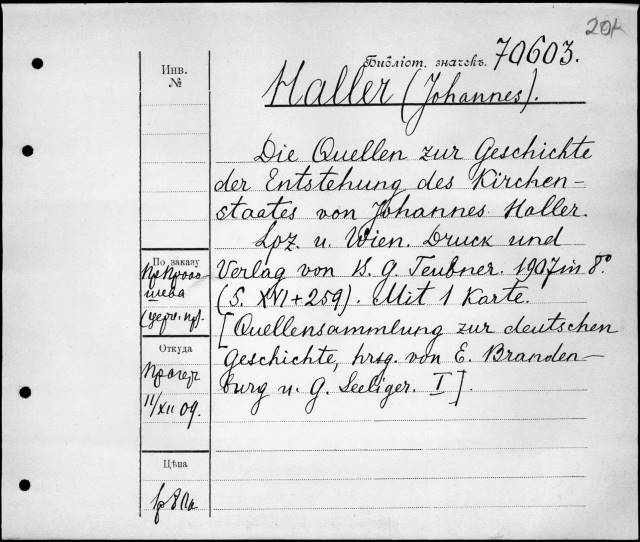 Библіот. значекъ. 70603.
Haller (Johannes).
Die Quellen zur Geschichte
der Entstehung des Kirchen-
staates von Johannes Haller.
Lpz. u. Wien. Druck und
Verlag von B. G. Teubner. 1907 in 8°
(S. XVI + 259). Mit 1 Karte.
[Quellensammlung zur deutschen
Geschichte, hrsg. von E. Branden-
burg u. G. Seeliger. I].
Инв.
№
По заказу
Откуда
11/XII 09.
Цѣна